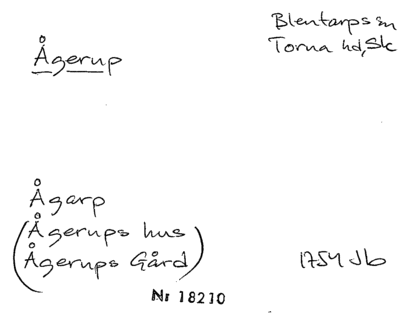 Ågerup
Blentarps sn
Torna hd, Sk
Ågarp
(Ågerups hus
Ågerups Gård)
1754 Jb
Nr 18210